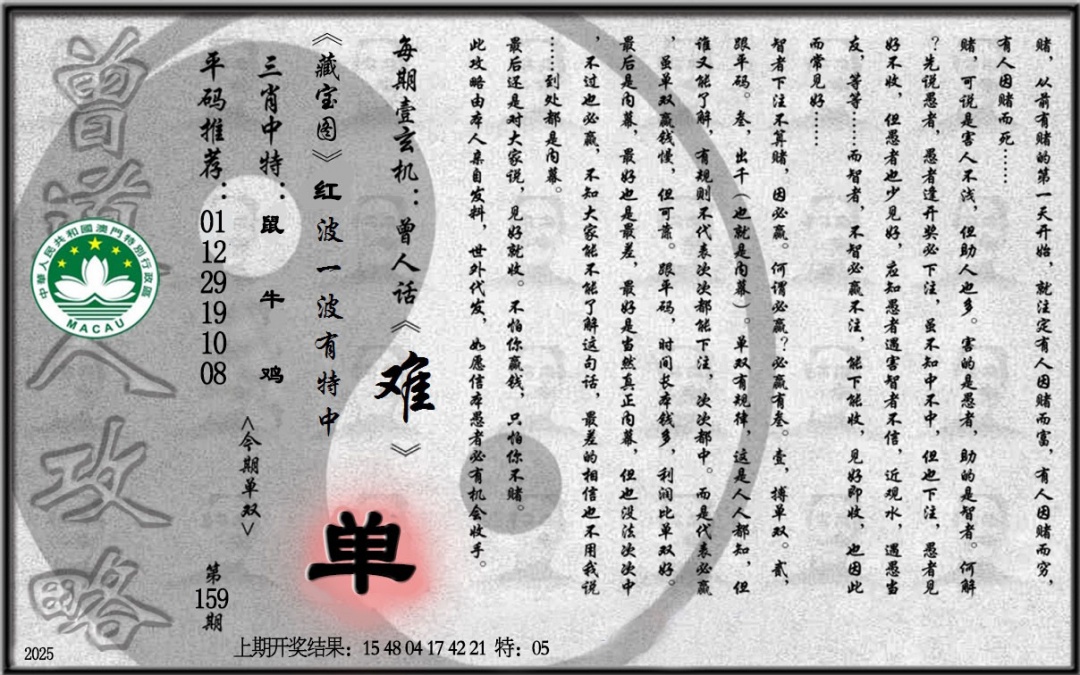 赌，从前有赌的第一天开始，就注定有人因赌而富，有人因赌而穷，
有人因赌而死……
赌，可说是害人不浅，但助人也多。害的是愚者，助的是智者。何解
？先说愚者，愚者逢开奖必下注，虽不知中不中，但也下注，愚者见
好不收，但愚者也少见好，应知愚者遇害智者不信，近观水，遇愚当
友，等等……而智者，不智必赢不注，能下能收，见好即收，也因此
而常见好……
智者下注不算赌，因必赢。何谓必赢？必赢有叁。壹，搏单双。贰，
跟平码。叁，出千（也就是内幕）。单双有规律，这是人人都知，但
谁又能了解，有规则不代表次次都能下注，次次都中。而是代表必赢
，虽单双赢钱慢，但可靠。跟平码，时间长本钱多，利润比单双好。
最后是内幕，最好也是最差，最好是当然真正内幕，但也没法次次中
，不过也必赢，不知大家能不能了解这句话，最差的相信也不用我说
……到处都是内幕。
最后还是对大家说，见好就收。不怕你赢钱，只怕你不赌。
此攻略由本人亲自发料，世外代发，如愿信本愚者必有机会收手。
每期壹玄机：曾人话《难》
《藏宝图》红波一波有特中
单
三肖中特：鼠牛鸡
<今期单双>
平码推荐：01 12 29 19 10 08
第159期
曾道人攻略
中華人民共和國澳門特別行政區
MACAU
2025
上期开奖结果：15 48 04 17 42 21 特：05